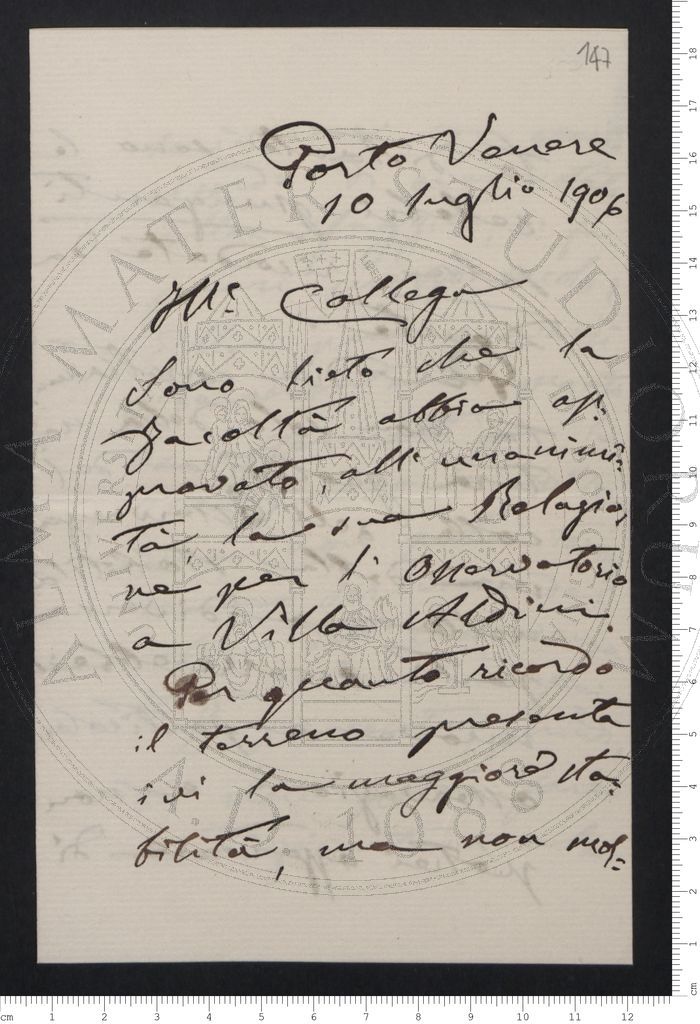 147
Porto Venere
10 luglio 1906
Ill.º Collega
Sono lieto che la
Facoltà abbia ap-
provato, all'unanimi-
tà, la sua Relazio-
ne per l'Osservatorio
a Villa Aldini.
Per quanto ricordo
il terreno presenta
ivi la maggiore sta-
bilità, ma non mol=
ALMA MATER STUDIORUM
A.D. 1088